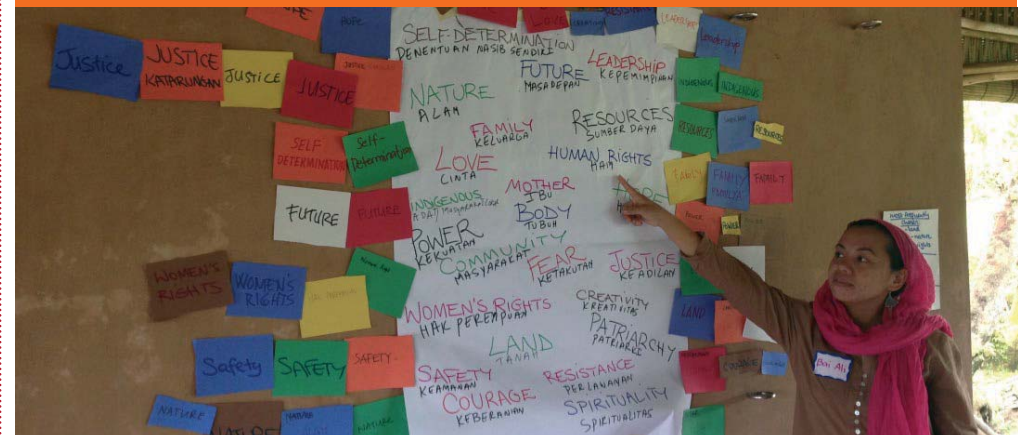 HOPE
LOVE
Justice
JUSTICE
KATARUNGAN
JUSTICE
JUSTICE
SELF
DETERMINATION
Self-
Determination
FUTURE
FUTURE
WOMEN'S
RIGHTS
WOMEN'S
RIGHTS
Safety
SAFETY
SAFETY-
NATURE
NATURE
NATURE
NATURE
SELF-DETERMINATION
PENENTUAN NASIB SENDIRI
LEADERSHIP
KEPEMIMPINAN
FUTURE
MASADEPAN
NATURE
ALAM
RESOURCES
SUMBER DAYA
FAMILY
KELUARGA
HUMAN RIGHTS
HAM
LOVE
CINTA
MOTHER
IBU
INDIGENOUS
BODY
TUBUH
POWER
KEKUATAN
COMMUNITY
MASYARAKAT
FEAR
KETAKUTAN
JUSTICE
KEADILAN
WOMEN'S RIGHTS
HAK PEREMPUAN
CREATIVITY
KREATIVITAS
PATRIARCHY
PATRIARKI
LAND
TANAH
SAFETY
KEAMANAN
RESISTANCE
PERLAWANAN
COURAGE
KEBERANIAN
SPIRITUALITY
SPIRITUALITAS
LEADERSHIP
Leadership
INDIGENOUS
INDIGENOUS
RESOURCES
RESOURCES
FAMILY
FAMILY
FAMILY
POWER
LAND
COURAGE
Bai Ali